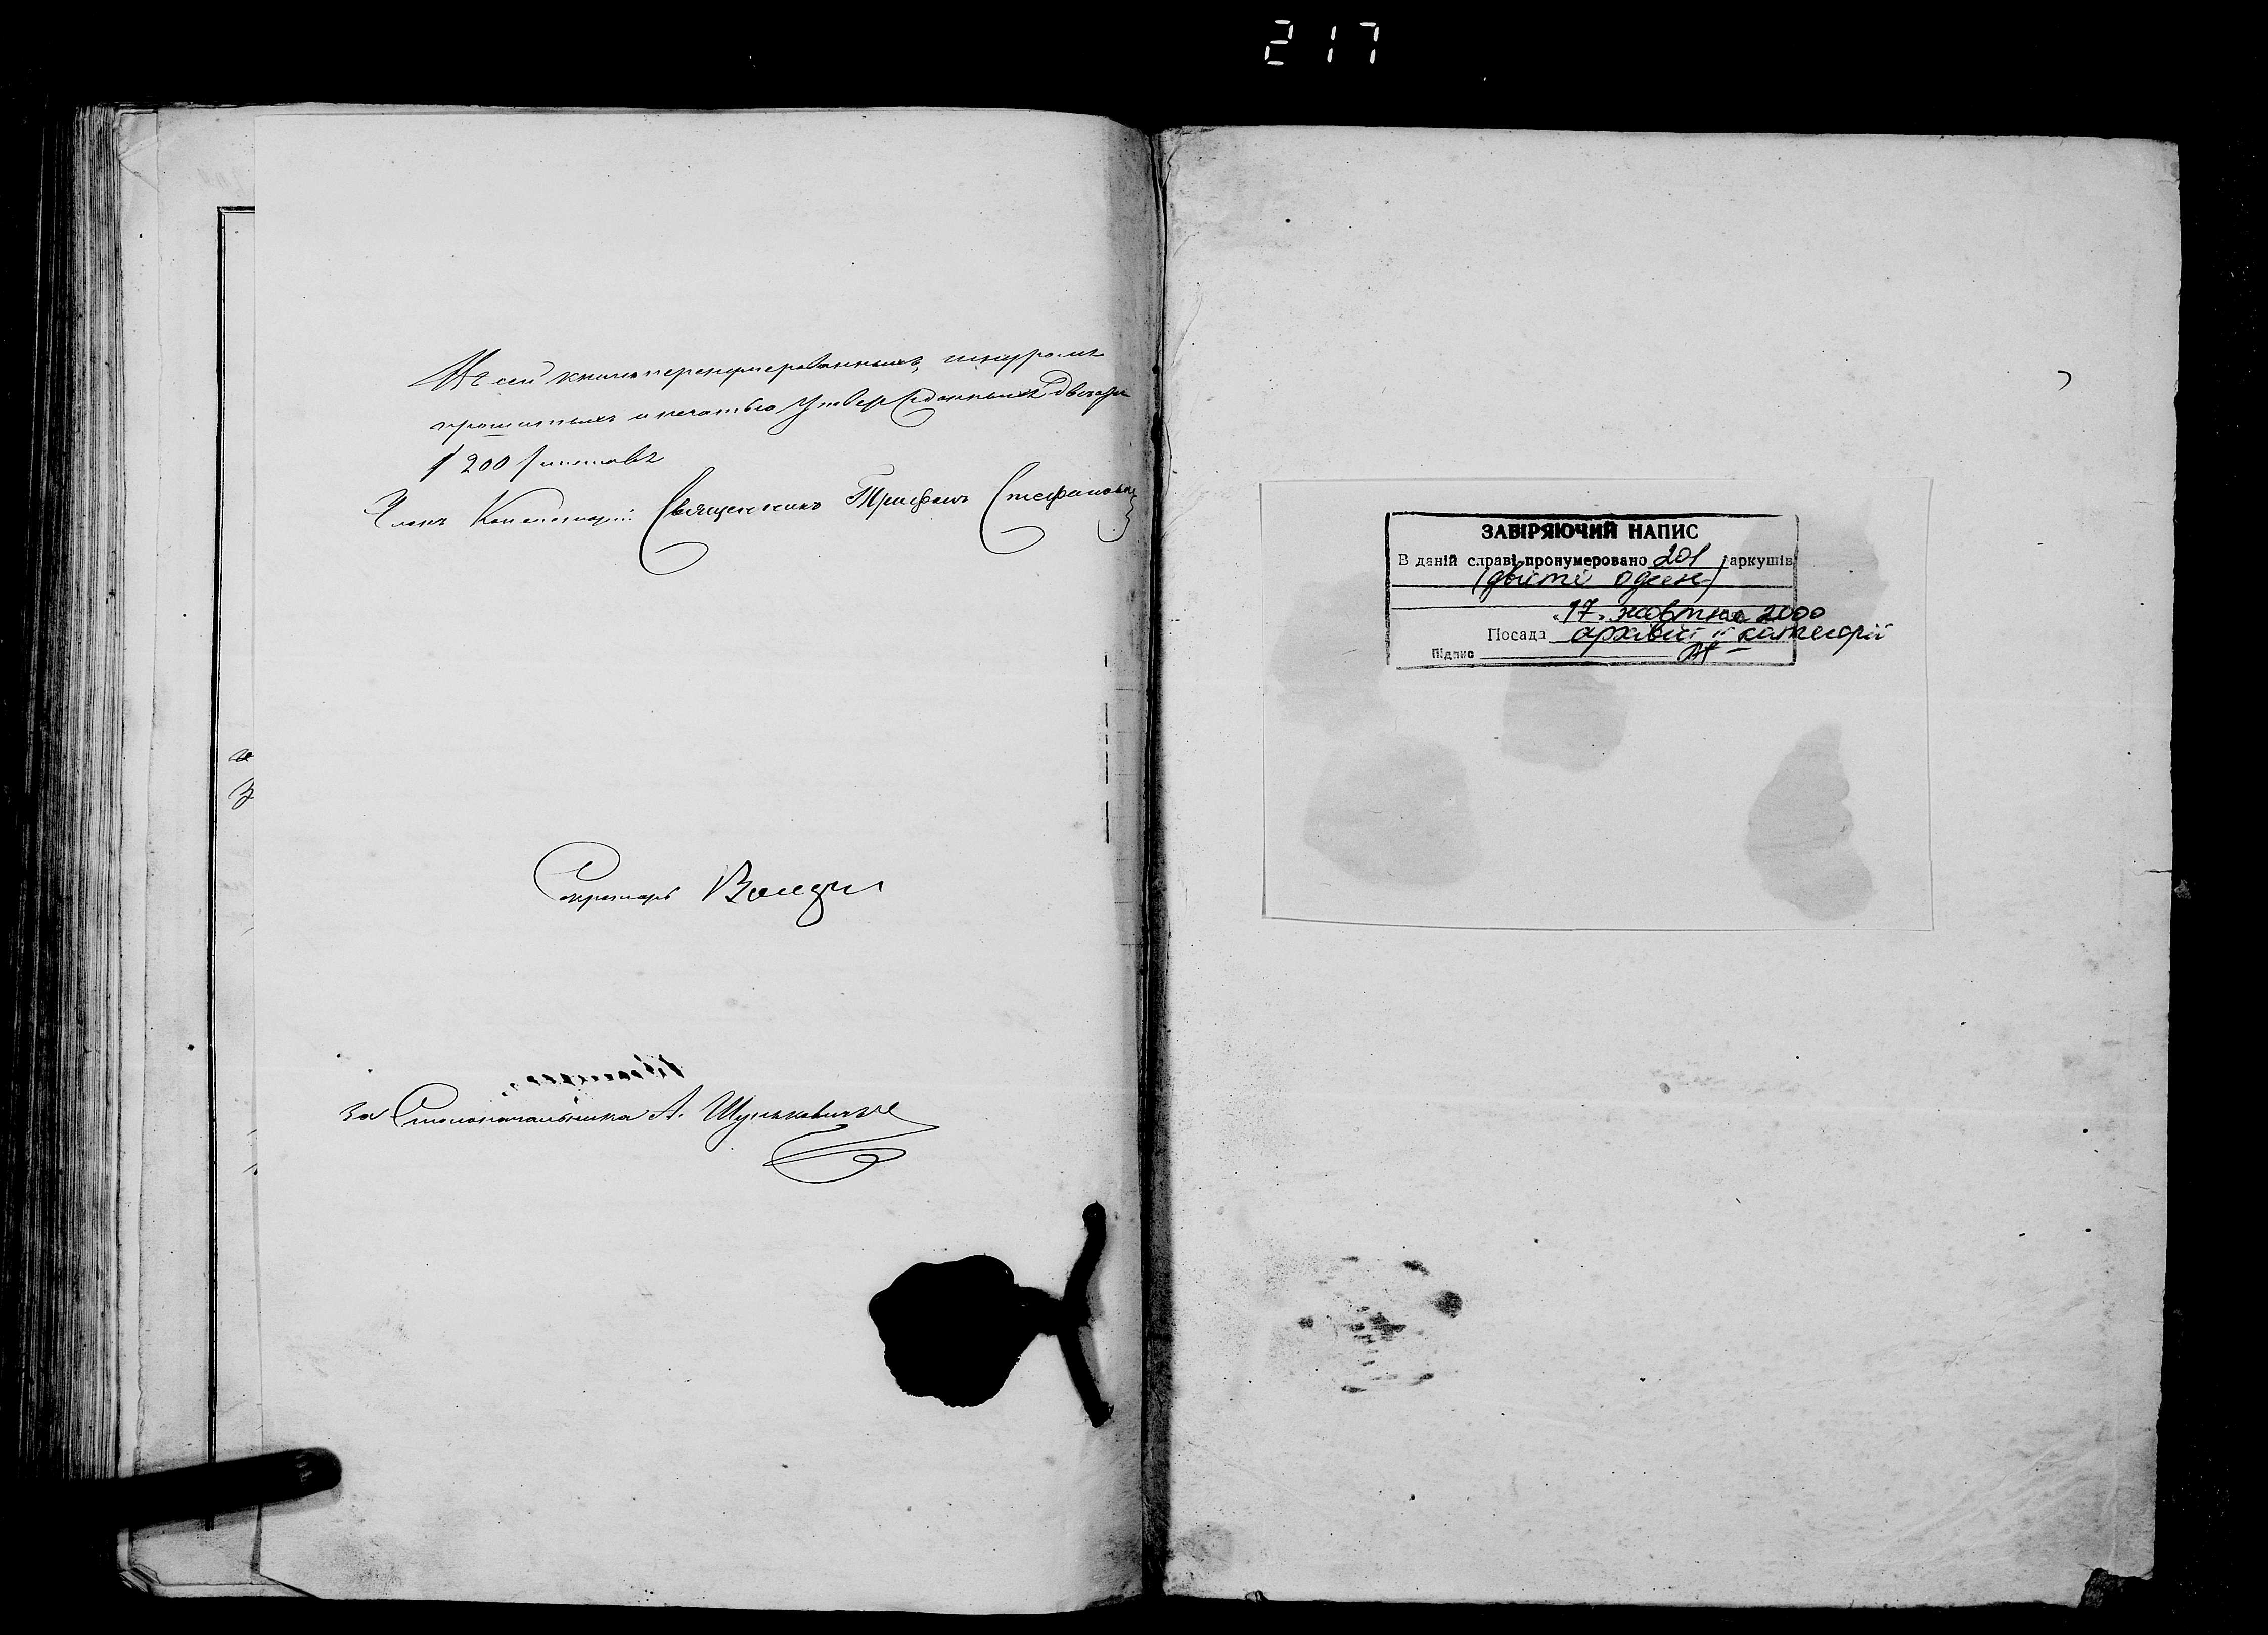 217
Въ сей книге перенумерованныхъ, шнуромъ
прошитыхъ и печатью утвержденныхъ двести
/200/ листовъ
Членъ Консисторіи Священникъ Трифонъ Стефановичъ
Секретарь
За Столоначальника А. Шулькевичъ
ЗАВІРЯЮЧИЙ НАПИС
В даній справі пронумеровано 201 аркушів
(двісті один)
"17" жовтня 2000
Посада архівіст II категорії
Підпис